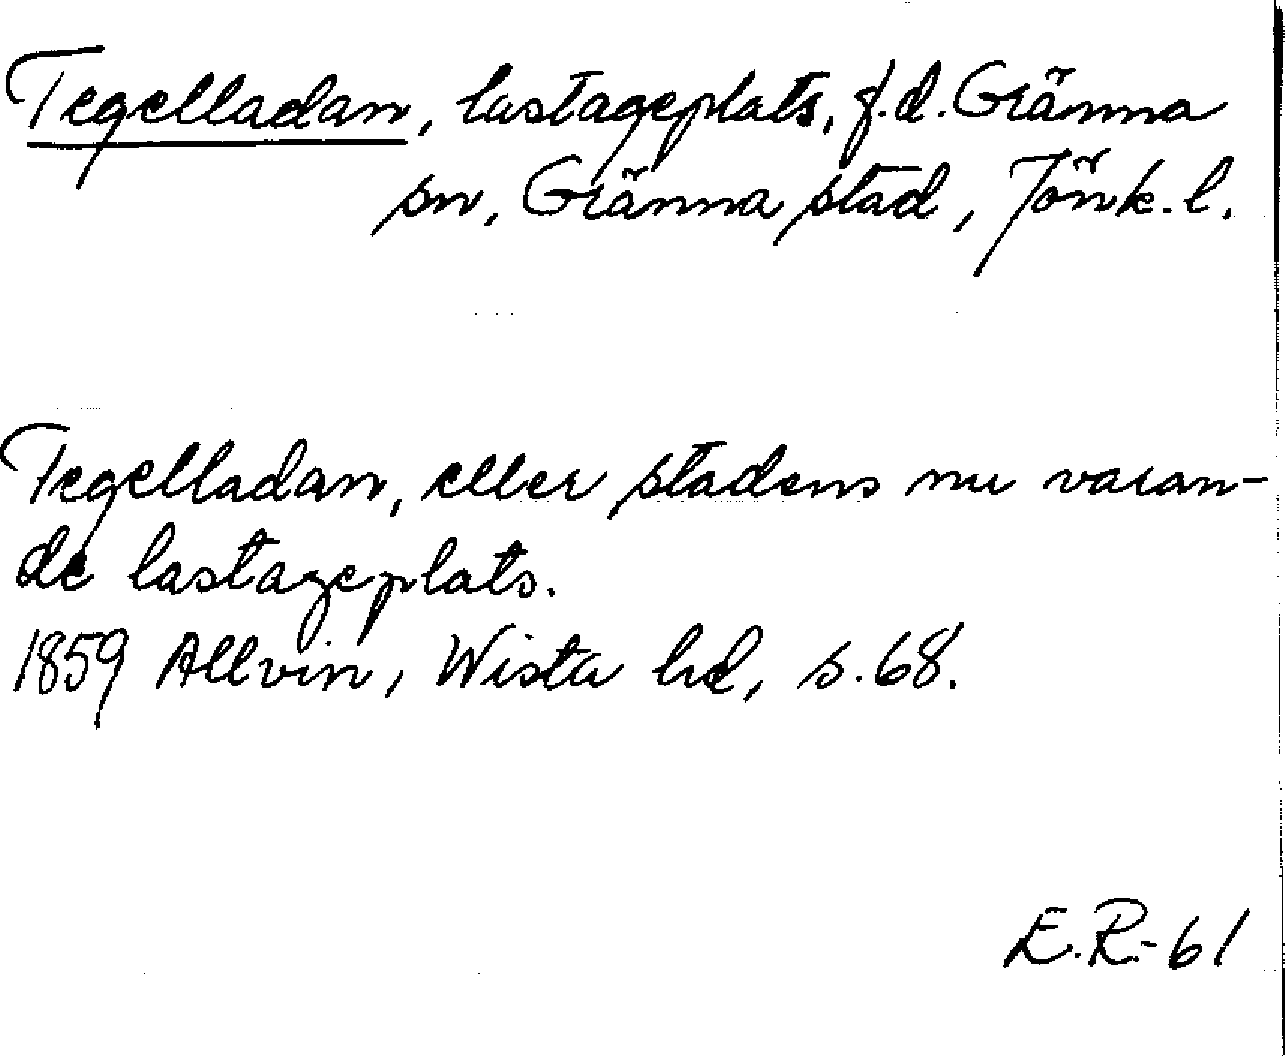 Tegelladan, lastageplats, f.d. Gränna
sn, Gränna stad, Jönk. l.
Tegelladan, eller stadens nu varan-
de lastageplats.
1859 Allvin, Wista hd, s. 68.
E.R.-61